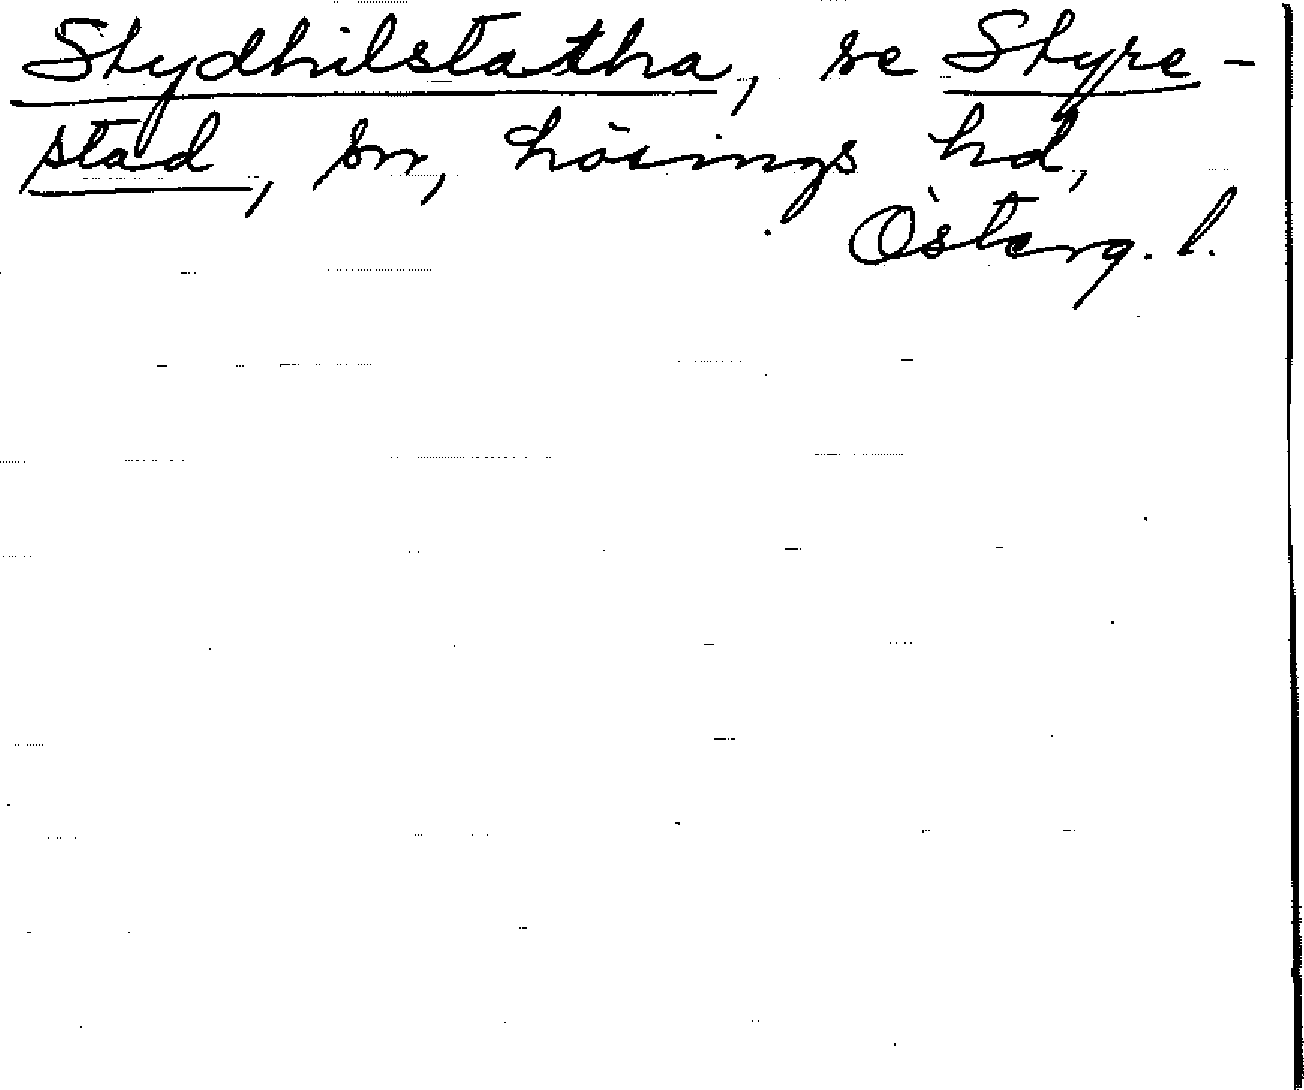 Stydhilstatha, se Styre-
stad, sn, Lösings hd,
Österg. l.